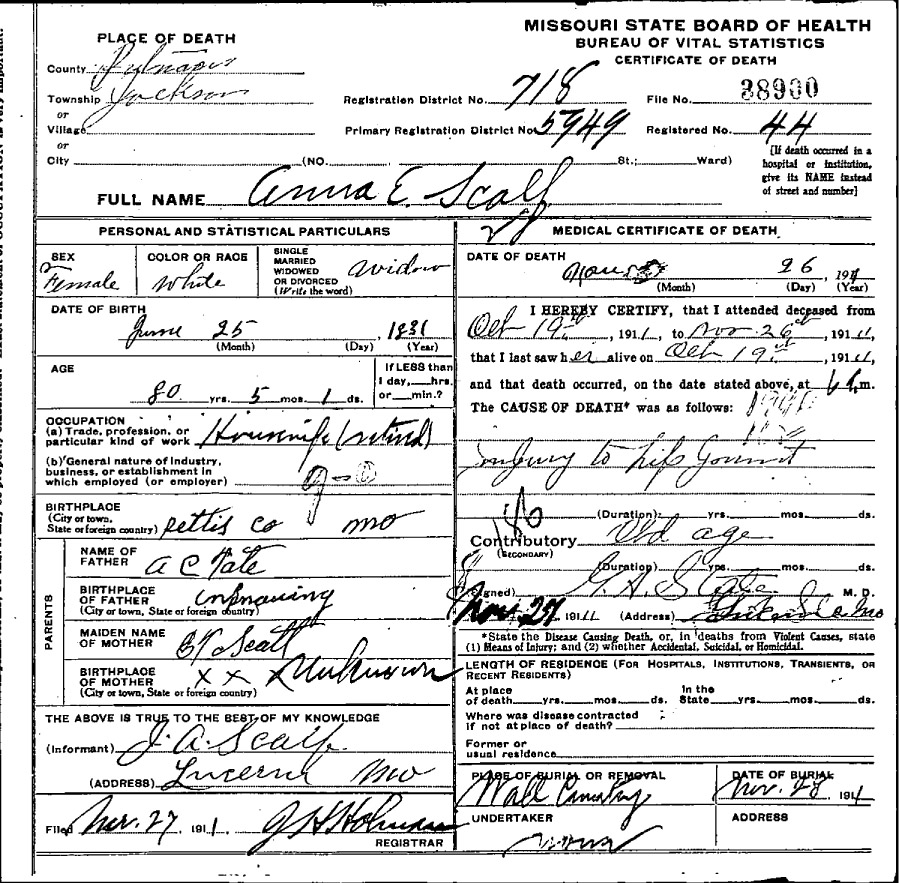 MISSOURI STATE BOARD OF HEALTH
BUREAU OF VITAL STATISTICS
CERTIFICATE OF DEATH
PLACE OF DEATH
County
Township Jackson
or
Village
or
City (NO. St.; Ward)
Registration District No. 718 File No. 38900
Primary Registration District No. 5949 Registered No. 44
[If death occurred in a
hospital or institution,
give its NAME instead
of street and number]
FULL NAME Anna E. Scalf
PERSONAL AND STATISTICAL PARTICULARS
SEX
Female
COLOR OR RACE
White
SINGLE
MARRIED
WIDOWED
OR DIVORCED
(Write the word)
Widow
DATE OF BIRTH
June 25 1831
(Month) (Day) (Year)
AGE
80 yrs. 5 mos. 1 ds.
If LESS than
1 day, hrs.
or min.?
OCCUPATION
(a) Trade, profession, or
particular kind of work Housewife (retired)
(b) General nature of industry,
business, or establishment in
which employed (or employer)
BIRTHPLACE
(City or town,
State or foreign country) Pettis Co Mo
PARENTS
NAME OF
FATHER A C Tate
BIRTHPLACE
OF FATHER
(City or town, State or foreign country)
MAIDEN NAME
OF MOTHER
BIRTHPLACE
OF MOTHER X X Unknown
(City or town, State or foreign country)
THE ABOVE IS TRUE TO THE BEST OF MY KNOWLEDGE
(Informant) J. A. Scalf
(ADDRESS) Lucerne Mo
Filed Nov. 27, 1911 J H Holman
REGISTRAR
MEDICAL CERTIFICATE OF DEATH
DATE OF DEATH
26, 1911
(Month) (Day) (Year)
I HEREBY CERTIFY, that I attended deceased from
Oct 19th, 1911, to Nov 26th, 1911,
that I last saw her alive on Oct 19th, 1911,
and that death occurred, on the date stated above, at m.
The CAUSE OF DEATH* was as follows:
Injury to hip joint
(Duration) yrs. mos. ds.
Contributory Old age
(SECONDARY)
(Duration) yrs. mos. ds.
(Signed) M. D.
Nov. 27 1911 (Address) Mo
*State the Disease Causing Death, or, in deaths from Violent Causes, state
(1) Means of Injury; and (2) whether Accidental, Suicidal, or Homicidal.
LENGTH OF RESIDENCE (FOR HOSPITALS, INSTITUTIONS, TRANSIENTS, OR
RECENT RESIDENTS)
At place
of death yrs. mos. ds.
In the
State yrs. mos. ds.
Where was disease contracted
if not at place of death?
Former or
usual residence
PLACE OF BURIAL OR REMOVAL
Wall Cemetery
DATE OF BURIAL
Nov. 28 1911
UNDERTAKER
ADDRESS